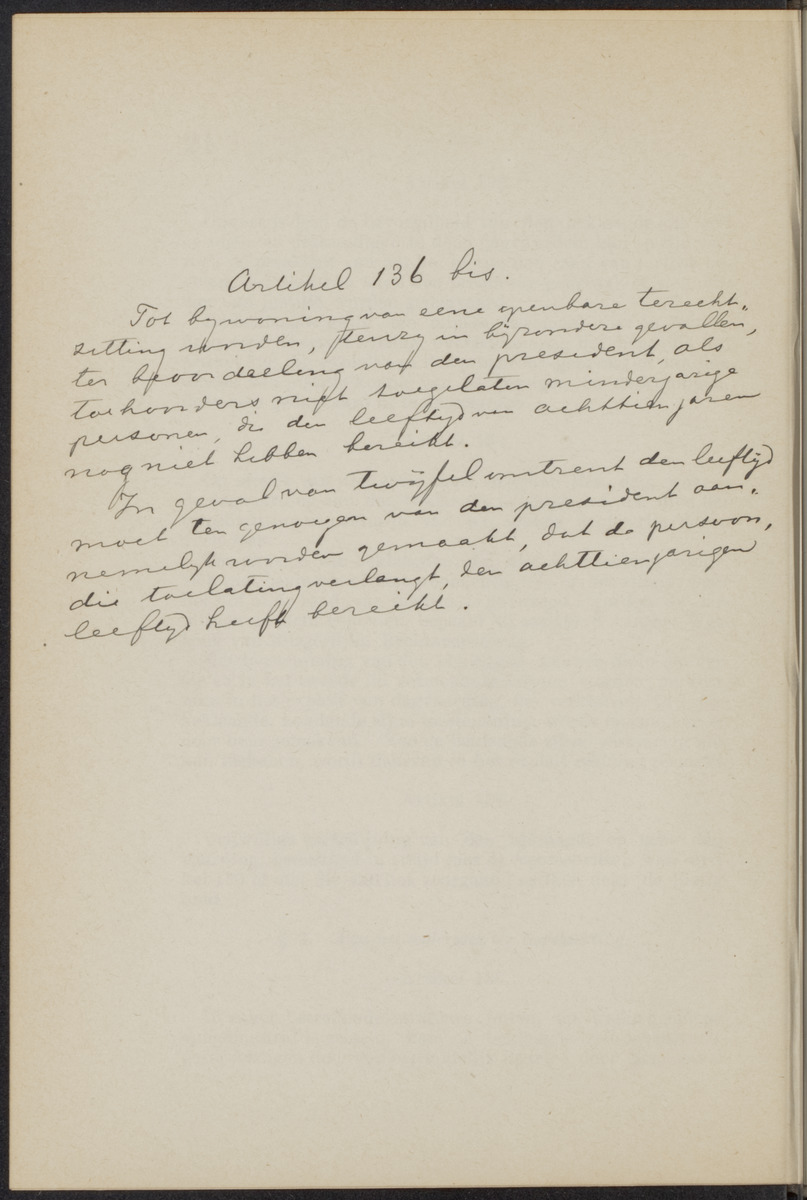 Artikel 136 bis.
Tot bywoning van eene openbare terecht-
zitting worden, tenzy in bijzondere gevallen,
ter beoordeeling van den president, als
toehoorders niet toegelaten minderjarige
personen, die den leeftyd van achttien jaren
nog niet hebben bereikt.
In geval van twijfel omtrent den leeftijd
moet ten genoegen van den president aan-
nemelyk worden gemaakt, dat de persoon,
die toelating verlangt, den achttienjarigen
leeftyd heeft bereikt.